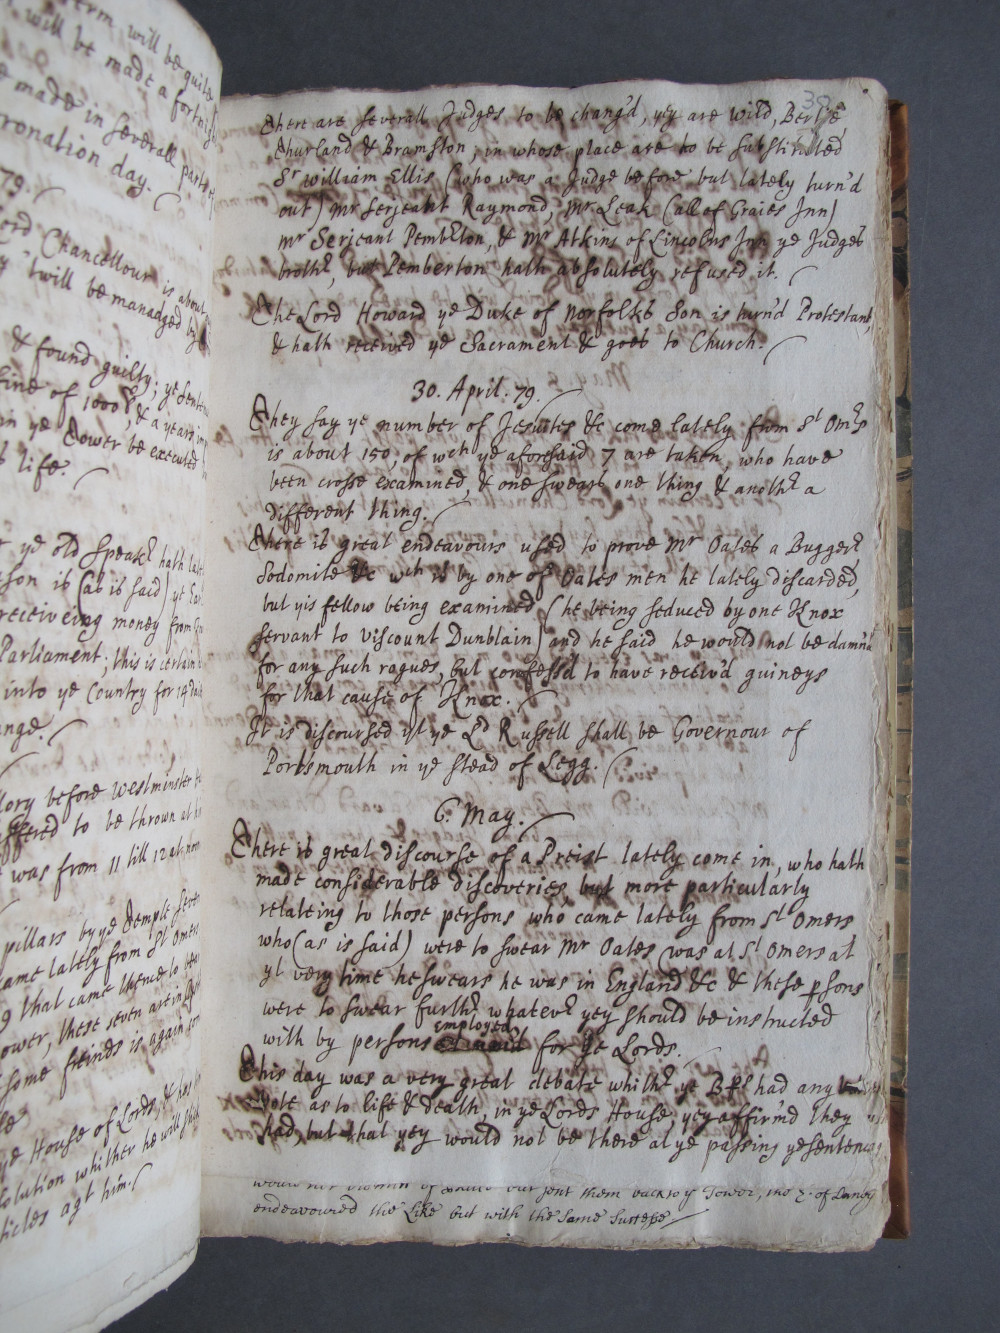 erm, will be quite
will be made a fortnigh
made in severall parts of
ronation day.
79.
ord Chancellour is about
twill be manadged by
& found guilty; ye senten
fine of 1000 & a years im
in ye Tower be executed
life.
ye old Speakr hath late
son is (as is said) ye Ear
receiveing money from
Parliament; this is certain
into ye Country for 14 dais
ange.
lory before Westminster
ffered to be thrown at
was from 11 till 12 at noon
pillars by ye Temple
came lately from St Omers
g that came thence to
ower, these seven are in
some freinds is again
ye House of Lords, &
solution whither he will
ticles agt him.
38
There are severall Judges to be chang'd, yey are wild, Bertie,
Thurland & Bramston; in whose place are to be substituted
Sr William Ellis (who was a Judge before but lately turn'd
out) Mr Serjeant Raymond, Mr Leak (all of Graies Inn)
Mr Serjeant Pemberton, & Mr Atkins of Lincolns Inn ye Judges
brothr, but Pemberton hath absolutely refused it.
The Lord Howard ye Duke of Norfolks Son is turn'd Protestant,
& hath received ye Sacrament & goes to Church.
30. April. 79.
They say ye number of Jesuites &c come lately from St Omrs
is about 150, of wch ye aforesaid 7 are taken, who have
been crosse examined, & one swears one thing & anothr a
different thing.
There is great endeavours used to prove Mr Oates a Buggerr
Sodomite &c wch is by one of Oates men he lately discarded,
but yis fellow being examined (he being seduced by one Knox
servant to Viscount Dunblain) and he said he would not be damn'd
for any such rogues, but confess'd to have receiv'd guineys
for that cause of Knox.
It is discoursed yt ye Ld Russell shall be Governour of
Portsmouth in ye stead of Legg.
6. May.
There is great discourse of a Preist lately come in, who hath
made considerable discoveries, but more particularly
relateing to those persons who came lately from St Omers
who (as is said) were to swear Mr Oates was at St Omers at
yt very time he swears he was in England &c & these psons
were to swear furthr whatevr yey should be instructed
with by persons employed for ye Lords.
This day was a very great debate whithr ye Bps had any
vote as to life & death, in ye Lords House, yey affirm'd they
had, but that yey would not be there at ye passing ye sentence
of sent them back to ye Tower, the E. of Danby
endeavoured the Like but with the same Suttesse